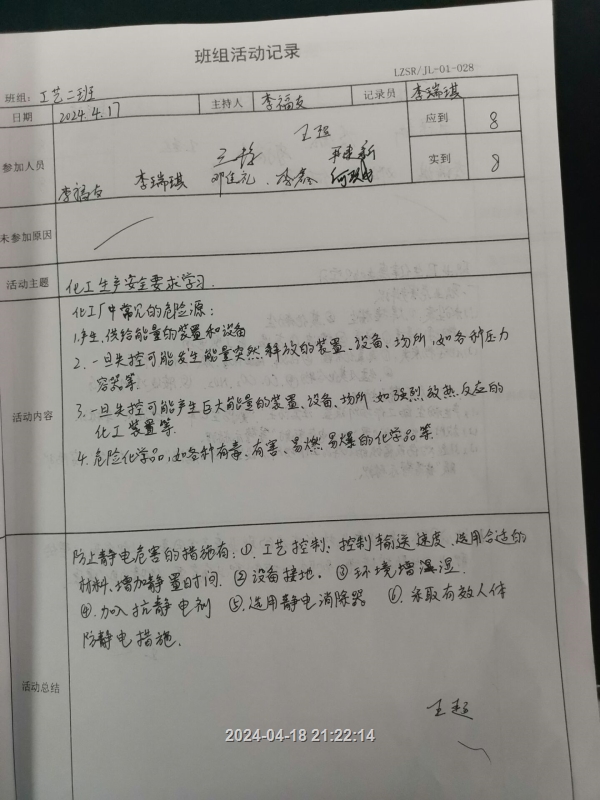 班组活动记录
LZSR/JL-01-028
班组: 工艺二班
日期 2024.4.17 主持人 李福友 记录员 李瑞琪
参加人员 王超 应到 8
李福友 李瑞琪 邓佳礼 李鑫 实到 8
未参加原因
活动主题 化工生产安全要求学习.
活动内容
化工厂中常见的危险源:
1.产生、供给能量的装置和设备
2. 一旦失控可能发生能量突然释放的装置、设备、场所,如各种压力
容器等.
3. 一旦失控可能产生巨大能量的装置、设备、场所.如强烈放热反应的
化工装置等.
4. 危险化学品,如各种有毒、有害、易燃易爆的化学品等.
活动总结
防止静电危害的措施有:①.工艺控制:控制输送速度.选用合适的
材料、增加静置时间. ②设备接地. ③环境增温湿.
④.加入抗静电剂 ⑤.选用静电消除器 ⑥.采取有效人体
防静电措施.
王超
2024-04-18 21:22:14